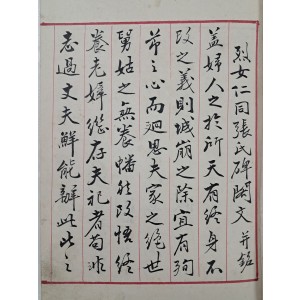 烈女仁同張氏碑閣文 并銘
盖婦人之於所天有終身不
改之義則城崩之際宜有殉
節之心而廻思夫家之絶世
舅姑之無養幡然改悟終
養老嫜繼存夫祀者苟非
志過丈夫鮮能辦此此之